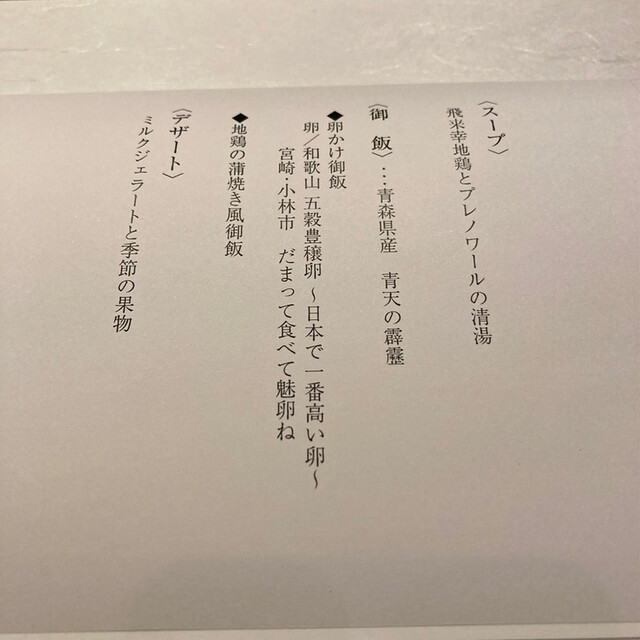 〈スープ〉
飛来幸地鶏とプレノワールの清湯
〈御 飯〉…青森県産 青天の霹靂
◆卵かけ御飯
卵／和歌山 五穀豊穣卵 〜日本で一番高い卵〜
宮崎・小林市 だまって食べて魅卵ね
◆地鶏の蒲焼き風御飯
〈デザート〉
ミルクジェラートと季節の果物